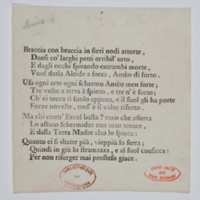 Braccia con braccia in fieri nodi attorte,
Dansi co' larghi petti orribil' urto,
E dagli occhi spirando entrambi morte,
Vuol darla Alcide a forza, Anteo di furto.
Usa ogni arte ogni schermo Anteo men forte;
Tre volte a terra è spinto, e tre n'è surto;
Ch'ei tocca il suolo appena, e il suol gli ha porte
Forze novelle, ond' è il valor risurto.
Ma chi come Ercol
Lo astuto schermidor con man tenace,
E dalla Terra Madre alto lo spicca:
Quanto ei si sbatte più, vieppiù lo serra;
Quindi in giù lo stramazza, e al suol conficca:
Per non risorger mai prosteso giace.